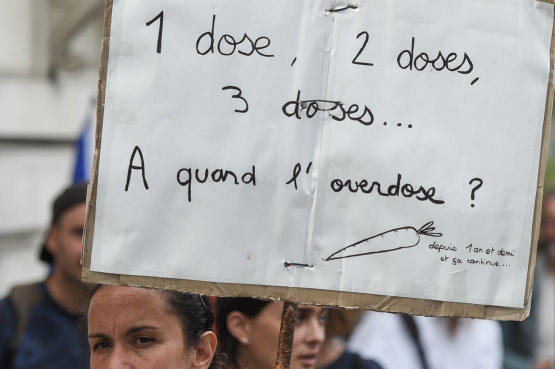 1 dose, 2 doses,
3 doses...
A quand l'overdose ?
depuis 1 an et demi
et ça continue...